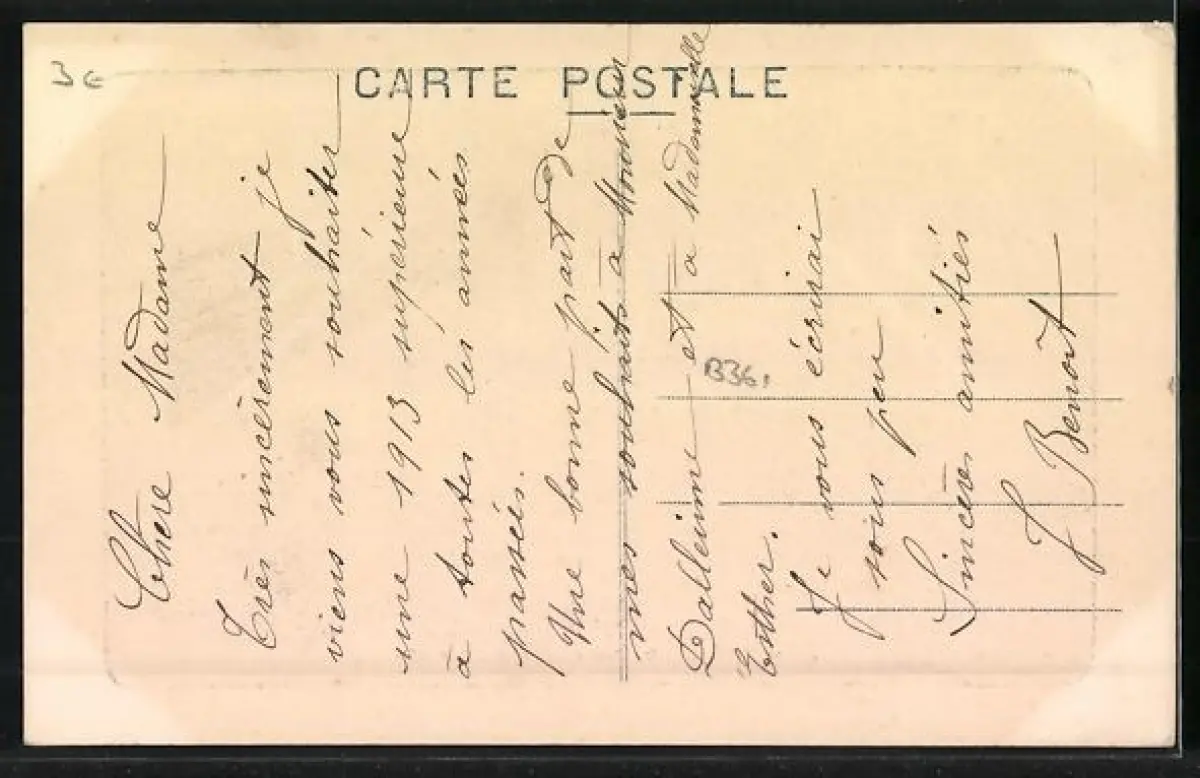 3 €
CARTE POSTALE
Chère Madame
Très sincèrement je
viens vous souhaiter
une 1913 supérieure
à toutes les années
passées.
Une bonne part de
mes souhaits à Monsieur
et à Mademoiselle
Esther.
Je vous écrirai
sous peu
Sincères amitiés
J Benoit
B36,